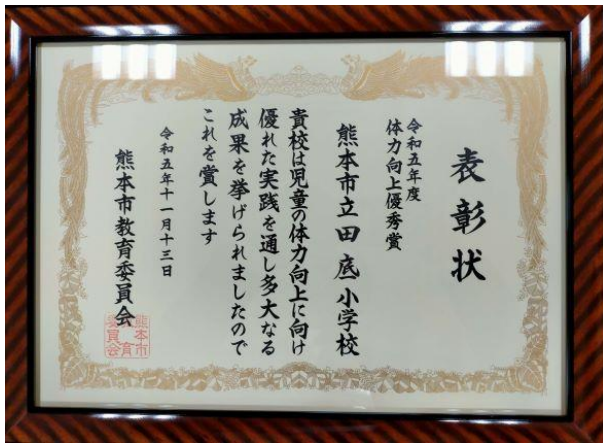 表彰状
令和五年度
体力向上優秀賞
熊本市立田底小学校
貴校は児童の体力向上に向け
優れた実践を通し多大なる
成果を挙げられましたので
これを賞します
令和五年十一月十三日
熊本市教育委員会
熊本市
教育
委員会